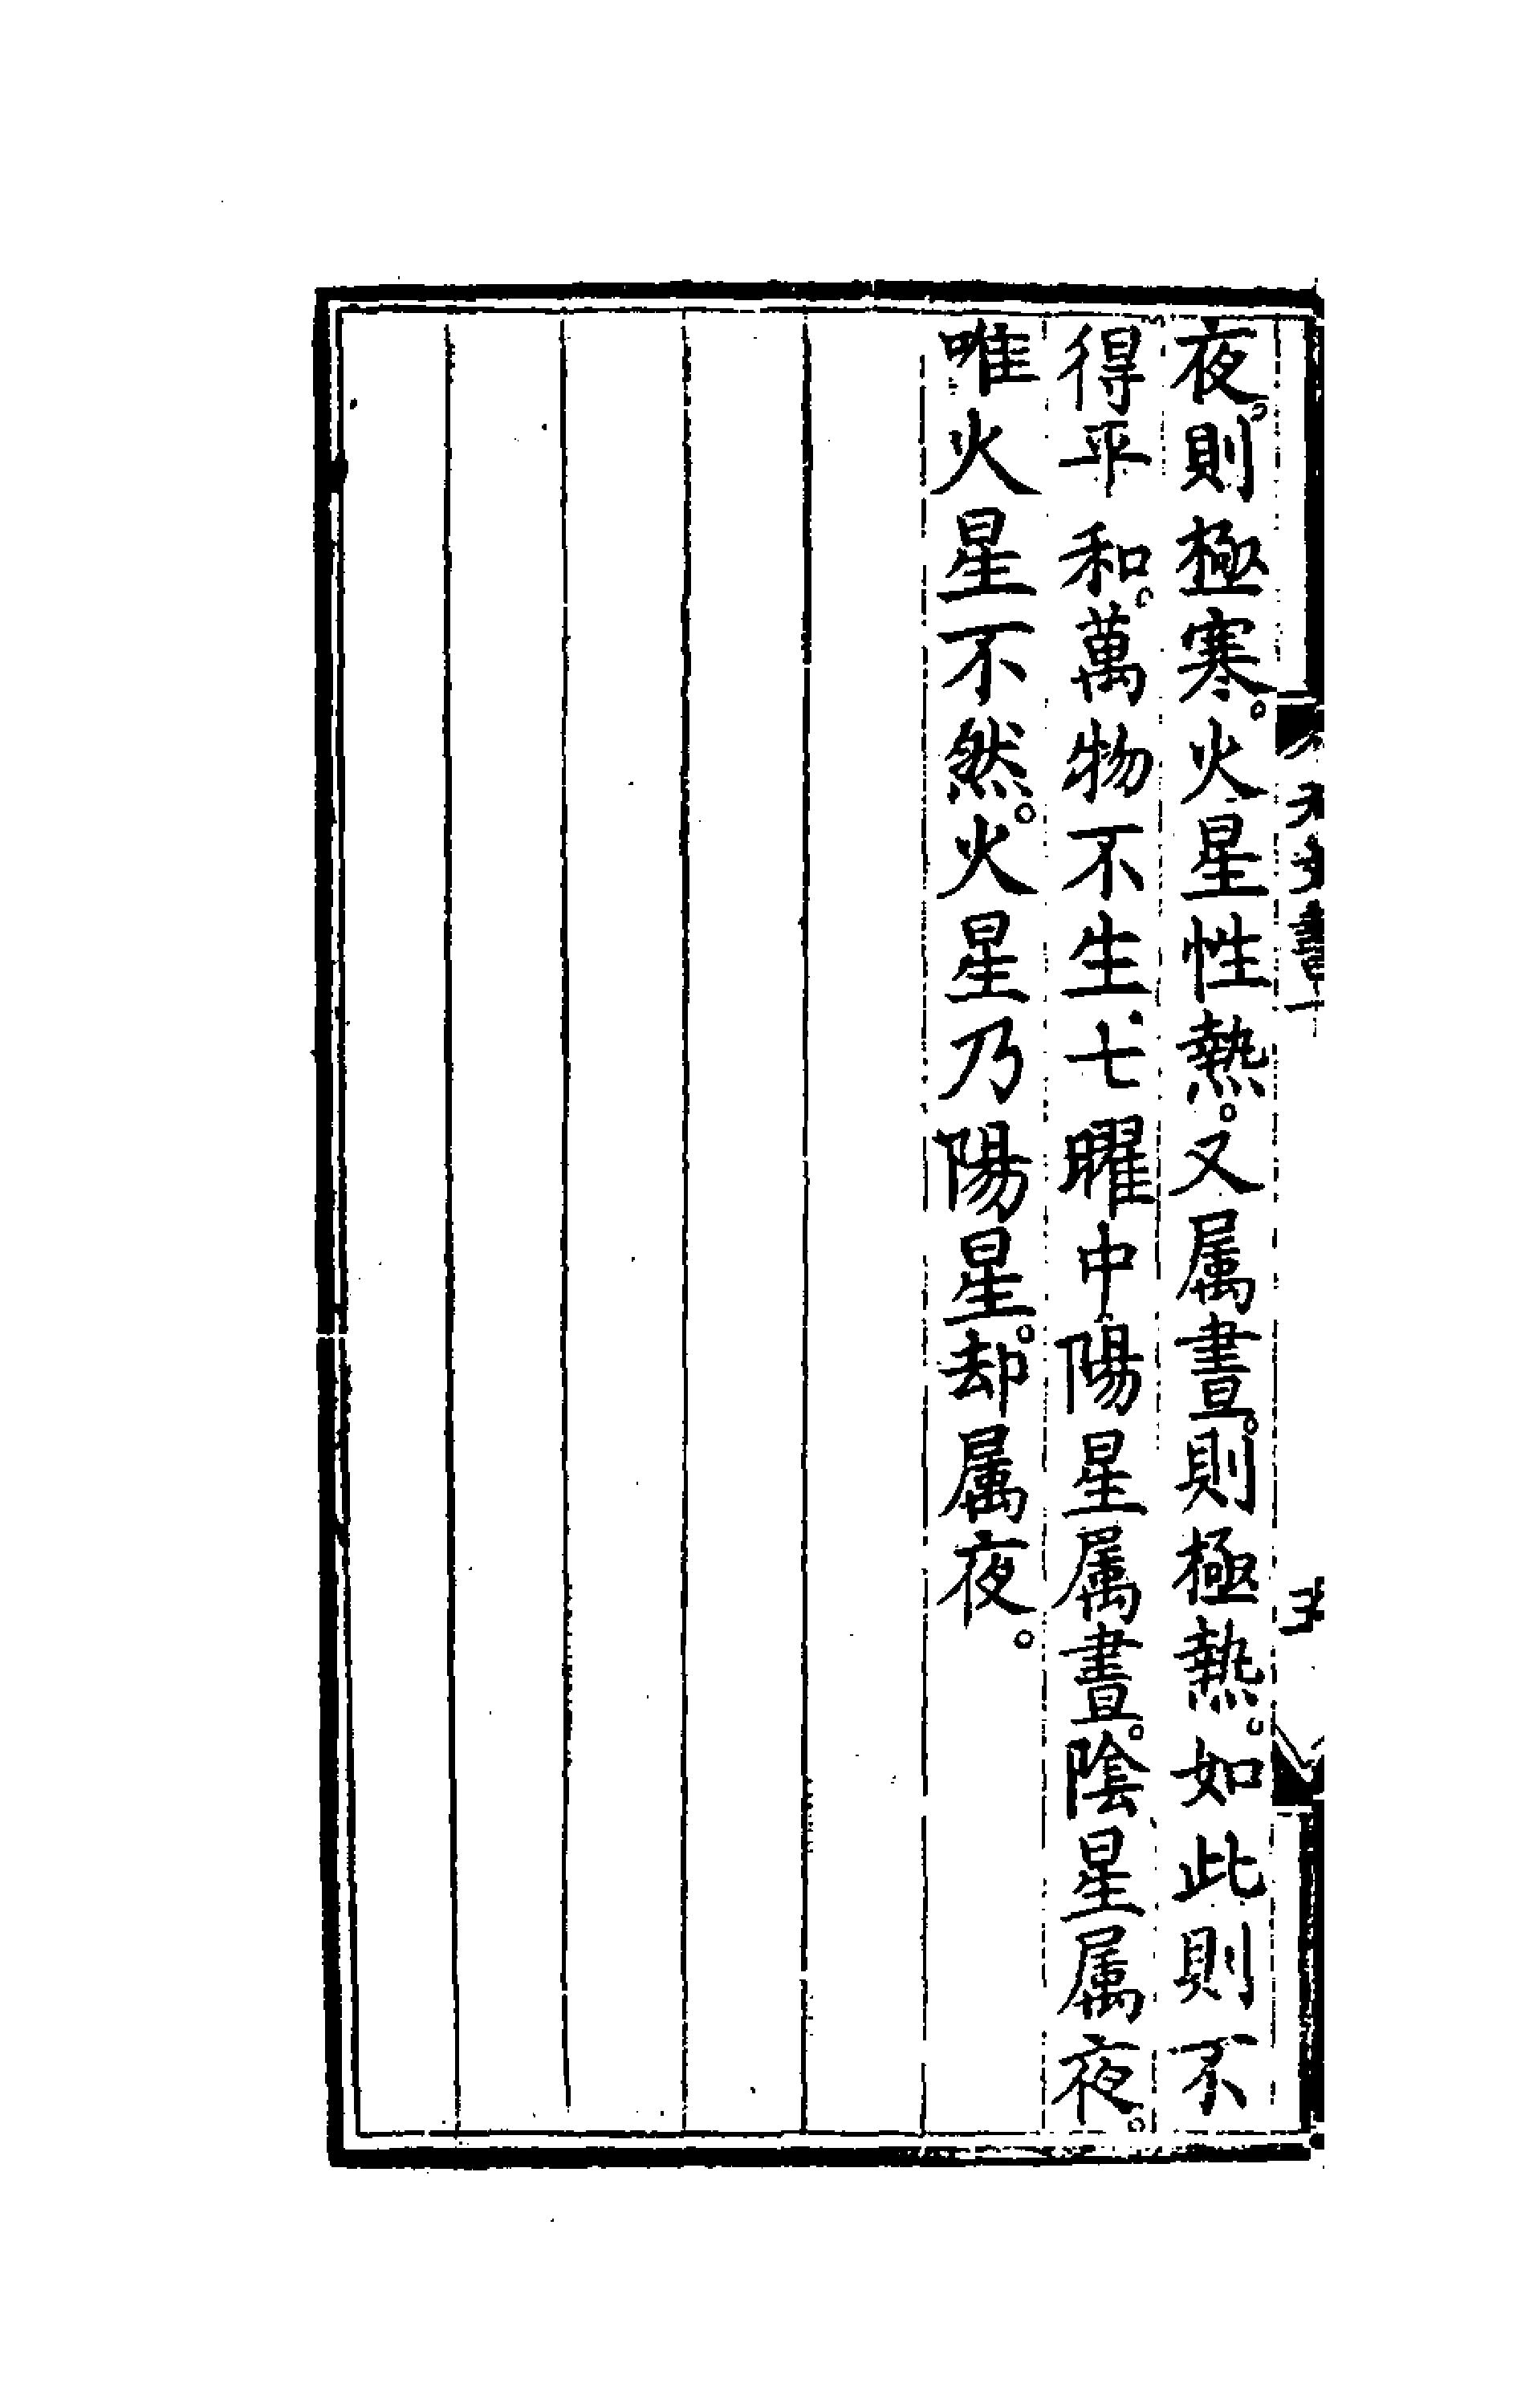 夜。則極寒。火星性熱。又属晝。則極熱。如此則不
得平和。萬物不生。七曜中陽星属晝。陰星属夜。
唯火星不然。火星乃陽星。却属夜。